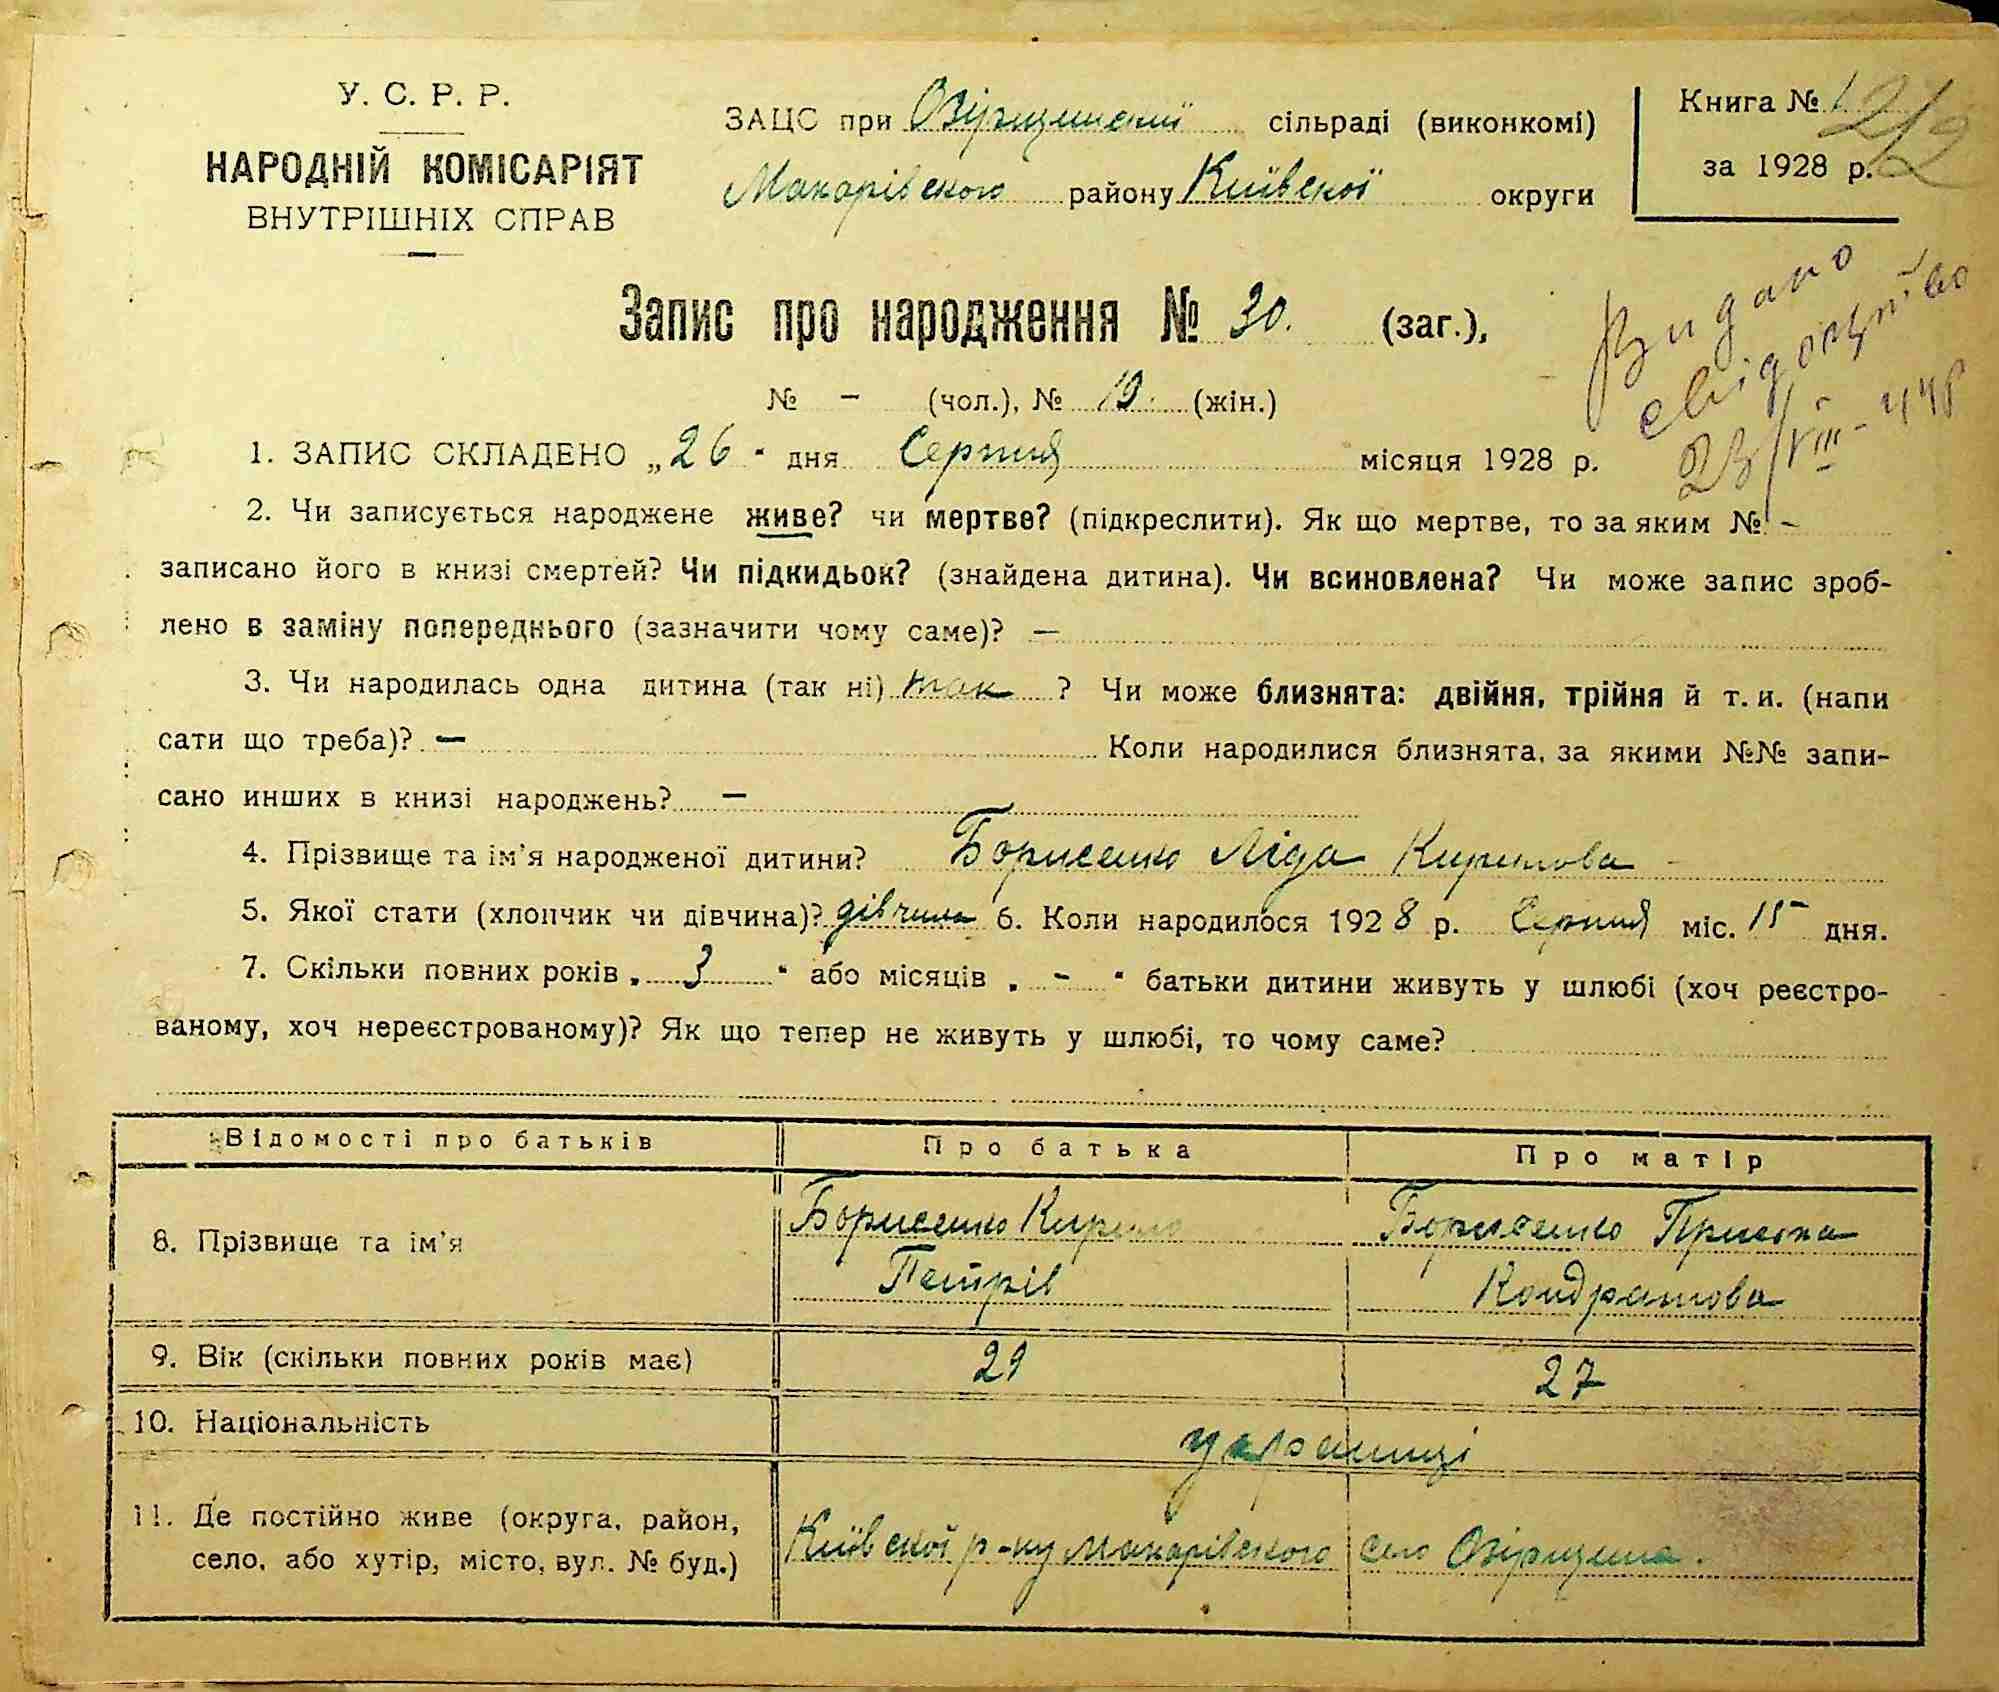 У. С. Р. Р.
НАРОДНІЙ КОМІСАРІЯТ
ВНУТРІШНІХ СПРАВ
ЗАЦС при Озірщинській сільраді (виконкомі)
Макарівского району Київскої округи
Книга № 1
за 1928 р.
212
Запис про народження № 30. (заг.),
№ - (чол.), № 19. (жін.)
Видано
свідоцтво
23/VIII-44р
1. ЗАПИС СКЛАДЕНО „26" дня Серпня місяця 1928 р.
2. Чи записується народжене живе? чи мертве? (підкреслити). Як що мертве, то за яким № -
записано його в книзі смертей? Чи підкидьок? (знайдена дитина). Чи всиновлена? Чи може запис зроб-
лено в заміну попереднього (зазначити чому саме)? —
3. Чи народилась одна дитина (так ні) так ? Чи може близнята: двійня, трійня й т. и. (напи
сати що треба)? — Коли народилися близнята, за якими №№ запи-
сано инших в книзі народжень? —
4. Прізвище та ім'я народженої дитини? Борисенко Ліда Кирилова
5. Якої стати (хлопчик чи дівчина)? дівчина 6. Коли народилося 1928 р. Серпня міс. 15 дня.
7. Скільки повних років „ 3 " або місяців „ - " батьки дитини живуть у шлюбі (хоч реєстро-
ваному, хоч нереєстрованому)? Як що тепер не живуть у шлюбі, то чому саме?
Відомості про батьків Про батька Про матір
8. Прізвище та ім'я Борисенко Кирило Борисенко Приська
Петрів Кондратова
9. Вік (скільки повних років має) 29 27
10. Національність українці
11. Де постійно живе (округа, район,
село, або хутір, місто, вул. № буд.) Київскої р-ну Макарівского село Озірщина.